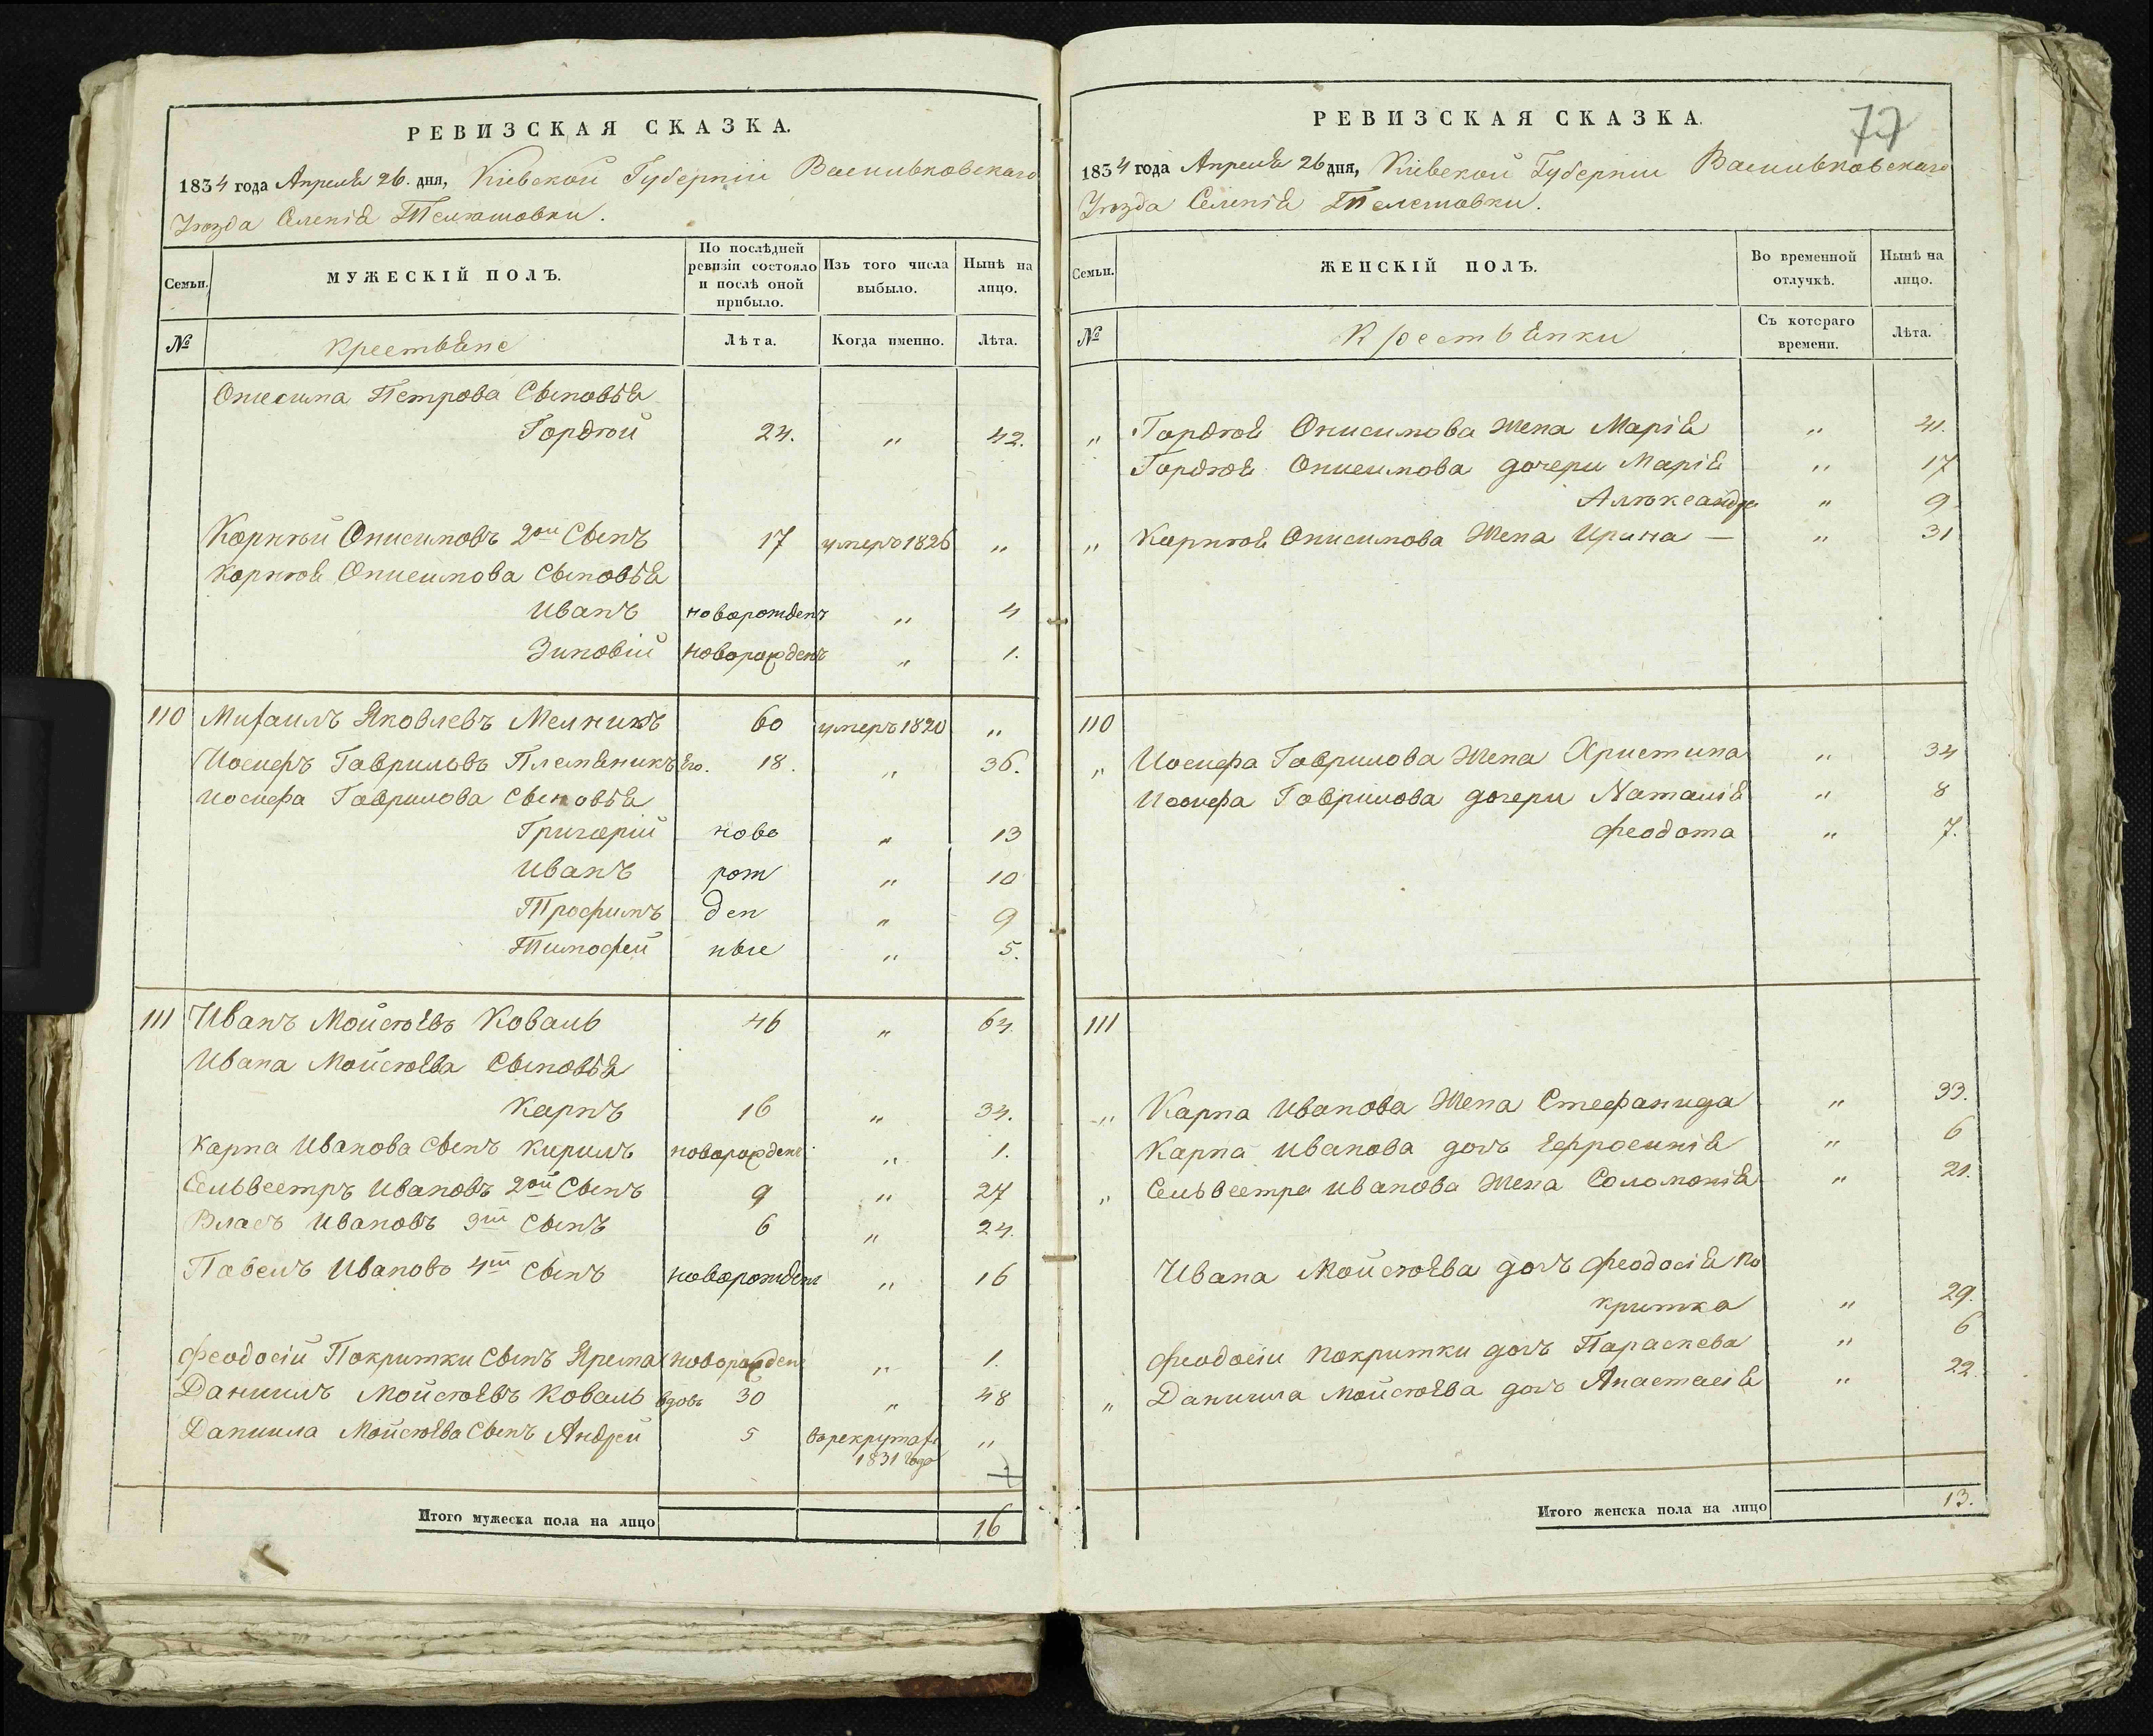 РЕВИЗСКАЯ СКАЗКА.
1834 года Апреля 26. дня, Кіевской Губерніи Васильковскаго
Уезда Селенія Телешовки.
Семьи.
МУЖЕСКІЙ ПОЛЪ.
По послѣдней ревизіи состояло и послѣ оной прибыло.
Изъ того числа выбыло.
Нынѣ на лицо.
№
Крестьяне
Лѣта.
Когда именно.
Лѣта.
Онисима Петрова Сыновья
Гордѣй 24. " 42.
Корнѣй Онисимовъ 2ой Сынъ 17 умеръ 1826 "
Корнѣя Онисимова Сыновья
Иванъ новорожденъ " 4
Зиновій новорожденъ " 1.
110 Михаилъ Яковлевъ Мелникъ 60 умеръ 1820 "
Иосифъ Гавриловъ Племяникъ Его. 18. " 36.
Иосифа Гаврилова Сыновья
Григорій ново " 13
Иванъ рож " 10
Трофимъ ден " 9
Тимофей ные " 5.
111 Иванъ Мойсѣевъ Коваль 46 " 64.
Ивана Мойсѣева Сыновья
Карпъ 16 " 34.
Карпа Иванова Сынъ Кирилъ новорожден " 1.
Сельвестръ Ивановъ 2ой Сынъ 9 " 27
Власъ Ивановъ 3ій Сынъ 6 " 24.
Павелъ Ивановъ 4ій Сынъ новорожден " 16
Феодосіи Покритки Сынъ Ярема новорожден " 1.
Даниилъ Мойсѣевъ Коваль вдовъ 30 " 48
Даниила Мойсѣева Сынъ Андрей 5 въ рекрутахъ "
1831 года
Итого мужеска пола на лицо 16
77
РЕВИЗСКАЯ СКАЗКА.
1834 года Апреля 26 дня, Кіевской Губерніи Васильковскаго
Уезда Селенія Телешовки.
Семьи.
ЖЕНСКІЙ ПОЛЪ.
Во временной отлучкѣ.
Нынѣ на лицо.
№
Крестьянки
Съ котораго времени.
Лѣта.
" Гордѣя Онисимова жена Марія " 41.
Гордѣя Онисимова дочери Марія " 17
Алѣксандра " 9
" Корнѣя Онисимова Жена Ирина — " 31
110
" Иосифа Гаврилова Жена Христина " 34
Иосифа Гаврилова дочери Наталія " 8
Феодота " 7.
111
" Карпа Иванова Жена Стефанида " 33.
Карпа Иванова дочь Ефросинія " 6
" Сельвестра Иванова Жена Соломонія " 21.
Ивана Мойсѣева дочь Феодосія По
критка " 29.
Феодосіи Покритки дочь Параскева " 6
" Даниила Мойсѣева дочь Анастасія " 22.
Итого женска пола на лицо 13.